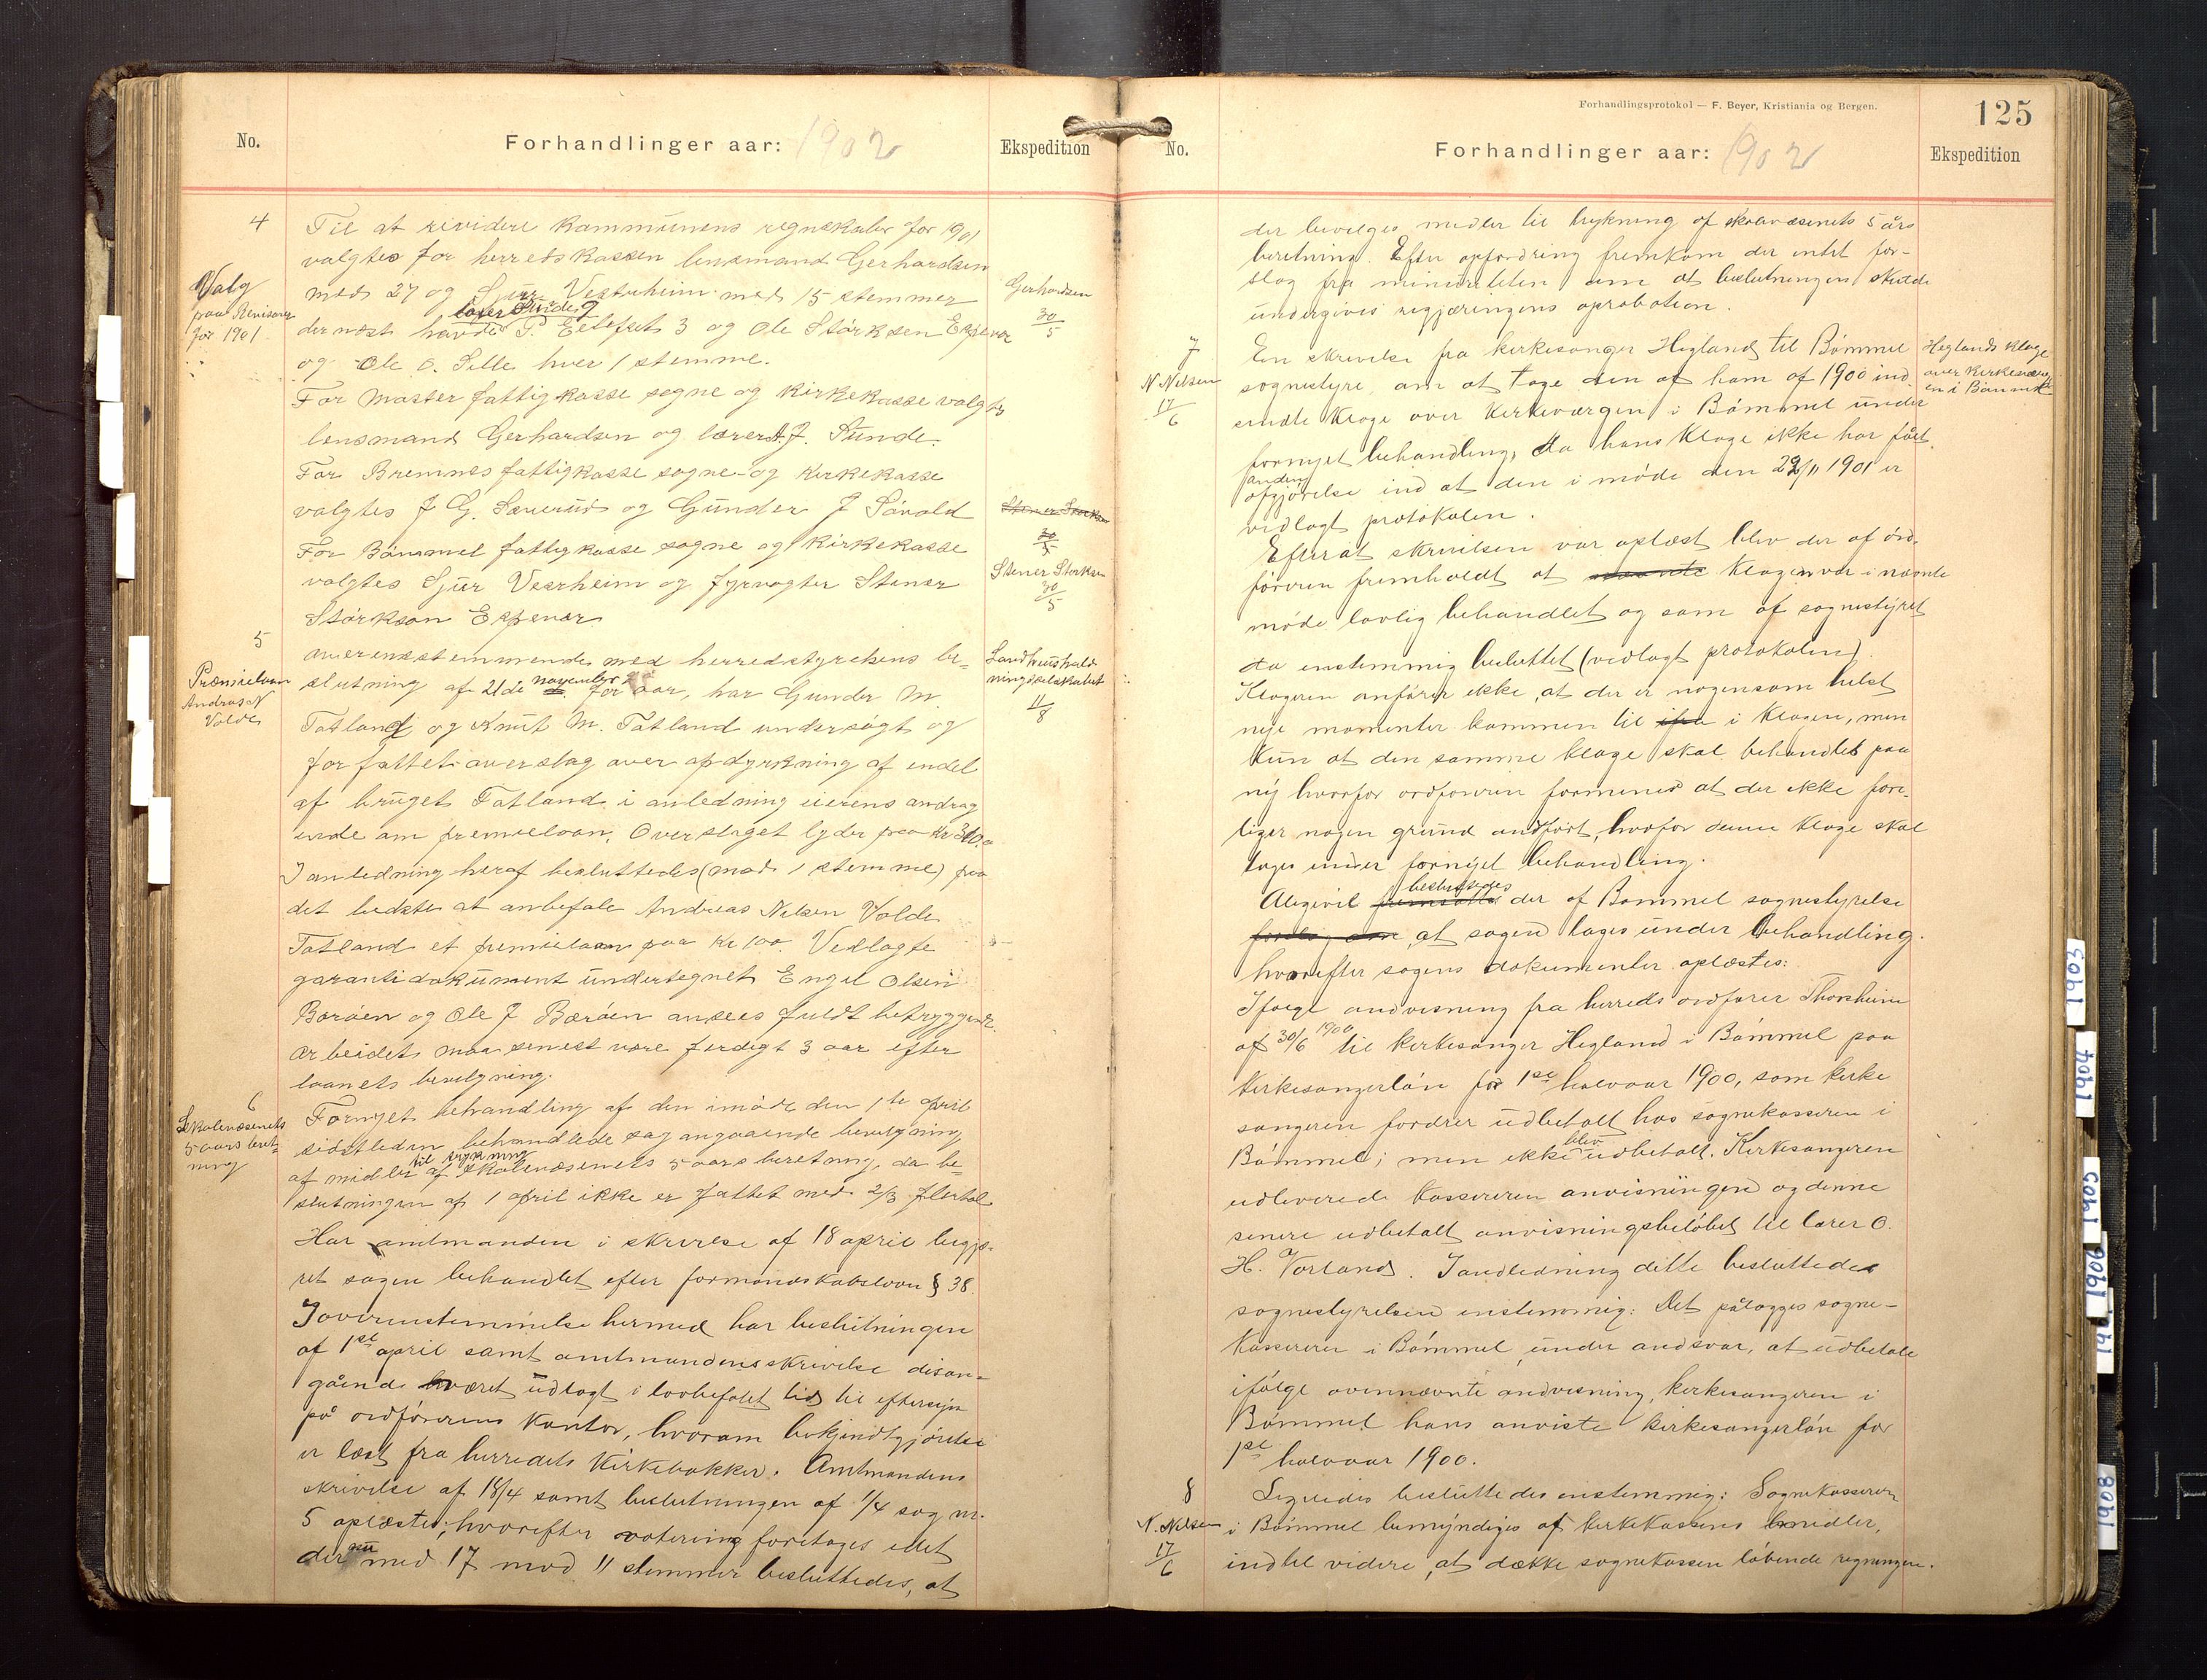 No.
Forhandlinger aar: 1902
Ekspedition
4
Til at rividere kommunens regnskaber for 1901
valgtes for herredskassen lensmand Gerhardsen
Valg
paa Revisorer
for 1901.
med 27 og Sjur Vestrheim med 15 stemmer
Gerhardsen
30/5
dernæst havde P. Eltefet 3 og Ole Störksen Espevær
og Ole O. Lille hver 1 stemme.
For Moster fattigkasse sogne og kirkekasse valgtes
lensmand Gerhardsen og lærer A. J. Sunde.
For Bremnes fattigkasse sogne- og kirkekasse
valgtes J G. Sæverud og Gunder J Såvold
Stener Storksen
30/5
For Bömmel fattigkasse sogne og kirkekasse
valgtes Sjur Vestrheim og fyrvogter Stener
Stener Storksen
30/5
Störkson Espevær
5
overensstemmende med herredstyrelsens be-
Præmielaan
Andreas N
Volde
Landhushold
ningsselskabet
11/8
slutning af 21de november for aar, har Gunder M.
Tatland og Knut M. Tatland undersøgt og
forfattet overslag over opdyrkning af endel
af bruget Tatland i anledning eierens andrag
ende om premielaan. Overslaget lyder paa kr 300.
I anledning heraf besluttedes (mod 1 stemme) paa
det bedste at anbefale Andreas Nilsen Volde
Tatland et premielaan paa kr 100. Vedlagte
garantidokument undertegnet Engel Olsen
Börøen og Ole J Bæröen ansees fuldt betryggende.
Arbeidet maa senest være ferdigt 3 aar efter
laanets bevilgning.
6
Skolevæsenets
5 aars beret-
ning
Fornyet behandling af den i møde den 1te april
sidstleden behandlede sag angaaende bevilgning
af midler til trykning af skolevæsenets 5 aars beretning, da be-
slutningen af 1 april ikke er fattet med 2/3 flertal
Har amtmanden i skrivelse af 18 april begjæ-
ret sagen behandlet efter formandskabsloven § 38.
I overenstemmelse hermed har beslutningen
af 1ste april samt amtmandens skrivelse disan-
gående været udlagt i lovbefalet tid til eftersyn
på ordførerens kontor, hvorom bekjendtgjörelse
er læst fra herredets kirkebakker. Amtmandens
skrivelse af 18/4 samt beslutningen af 1/4 sag nr.
5 oplæstes; hvorefter votering foretoges idet
der nu med 17 mod 11 stemmer besluttedes, at
Forhandlingsprotokol — F. Beyer, Kristiania og Bergen.
125
No.
Forhandlinger aar: 1902
Ekspedition
der bevilges midler til trykning af skolevæsenets 5 års
beretning. Efter opfordring fremkom der intet for-
slag fra minoriteten om at beslutningen skulde
undergives regjæringens aprobation.
7
N. Nilsen
17/6
En skrivelse fra kirkesanger Hegland til Bömmel
Heglands klage
over kirkeværg
en i Bömmel
sognestyre, om at tage den af ham af 1900 ind
sendte klage over kirkeværgen i Bömmel under
fornyet behandling, da hans klage ikke har fået
anden
afgjörelse ind at den i möde den 29/11 1901 er
vidlagt protokolen.
Efterat skrivelsen var oplæst blev der af ord-
föreren fremholdt at klagen var i nævnte
möde lovlig behandlet og som af sognestyret
da enstemmig besluttet (vedlagt protokolen).
Klageren anfører ikke, at der er nogensom helst
nye momenter kommen til i klagen, men
kun at den samme klage skal behandles paa
ny hvorfor ordføreren formener at der ikke fore-
ligger nogen grund andført, hvorfor denne klage skal
tages under fornyet behandling.
Alegivil besluttedes der af Bømmel sognestyrelse
at sagen tages under behandling.
hvorefter sagens dokumenter oplæstes:
Ifølge andvisning fra herreds ordfører Thorsheim
af 30/6 1900 til kirkesanger Hegland i Bömmel paa
kirkesangerlön for 1ste halvaar 1900, som kirke
sangeren fordrer udbetalt hos sognekassereren i
Bömmel; men ikke blev udbetalt. Kirkesangeren
udleverede kassereren anvisningen og denne
senere udbetalt anvisningsbelöbet til lærer O.
H. Vorland. I andledning dette besluttedes
sognestyrelsen enstemmig: Det pålægges sogne-
kassereren i Bömmel, under andsvar, at udbetale
ifölge ovennævnte andvisning, kirkesangeren i
Bömmel hans anviste kirkesangerlön for
1ste halvaar 1900.
8
N. Nilsen
17/6
Ligeledes besluttedes enstemmig: Sognekassereren
i Bömmel bemyndiges af kirkekassens midler,
indtil videre, at dække sognekassen löbende regninger.
1903
1904
1905
1906
1908